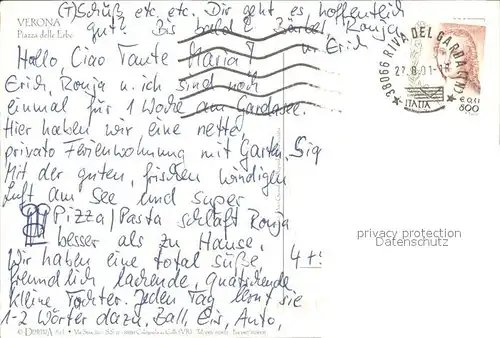 (T)Schüß etc. etc. Dir geht es hoffentlich
VERONA
Piazza delle Erbe
gut? Bis bald! Bärbel, Ronja
u. Erich
Hallo Ciao Tante Maria!
Erich, Ronja u. ich sind noch
einmal für 1 Woche am Gardasee.
Hier haben wir eine nette,
privato Ferienwohnung mit Garten. Sig
Mit der guten, frischen windigen
Luft am See und super
Pizza/Pasta schläft Ronja
besser als zu Hause.
Wir haben eine total süße
freundlich lachende, quatschende
kleine Tochter. Jeden Tag lernt sie
1-2 Wörter dazu. Ball, Eis, Auto,
38066 RIVA DEL GARDA (TN)
27.8.01
ITALIA
€ 0,41
800
privacy protection
Datenschutz
© DEMETRA